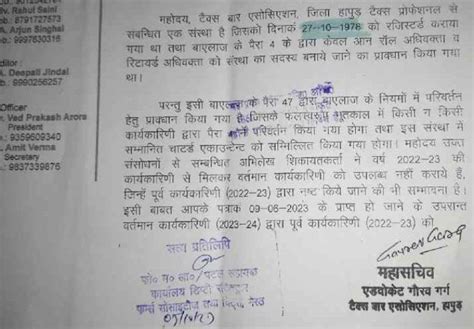 Rahul Saini
9012541787
Arjun Singhal
9997630316
Deepali Jindal
9990256257
Officer
Ved Prakash Arora
President
9359609340
Amit Verma
Secretary
9837339876
महोदय, टैक्स बार एसोसिएशन, जिला हापुड़ टैक्स प्रोफेशनल से
सबन्धित एक संस्था है जिसको दिनांक 27-10-1978 को रजिस्टर्ड कराया
गया था तथा बाएलाज के पैरा 4 के द्वारा केवल आन रॉल अधिवक्ता व
रिटायर्ड अधिवक्ता को संस्था का सदस्य बनाये जाने का प्रावधान किया गया
था।
परन्तु इसी बाएलाज के पैरा 47 द्वारा बाएलाज के नियमों में परिवर्तन
हेतु प्रावधान किया गया है जिसके फलस्वरूप भूतकाल में किसी न किसी
कार्यकारिणी द्वारा पैरा परिवर्तन किया गया होगा तथा इस संस्था में
सम्मानित चार्टड एकाउन्टेन्ट को सम्मिल्लित किया गया होगा। महोदय उक्त
संसोधनो से सम्बन्धित अभिलेख शिकायतकर्ता ने वर्ष 2022-23 की
कार्यकारिणी से मिलकर वर्तमान कार्यकारिणी को उपलब्ध नहीं कराये है,
जिन्हें पूर्व कार्यकारिणी (2022-23) द्वारा नष्ट किये जाने की भी सम्भावना है।
इसी बाबत आपके पत्राक 09-06-2023 के प्राप्त हो जाने के उपरान्त
वर्तमान कार्यकारिणी (2023-24) द्वारा पूर्व कार्यकारिणी (2022-23) को
सत्य प्रतिलिपि
महासचिव
एडवोकेट गौरव गर्ग
टैक्स बार एसोसिएशन, हापुड़